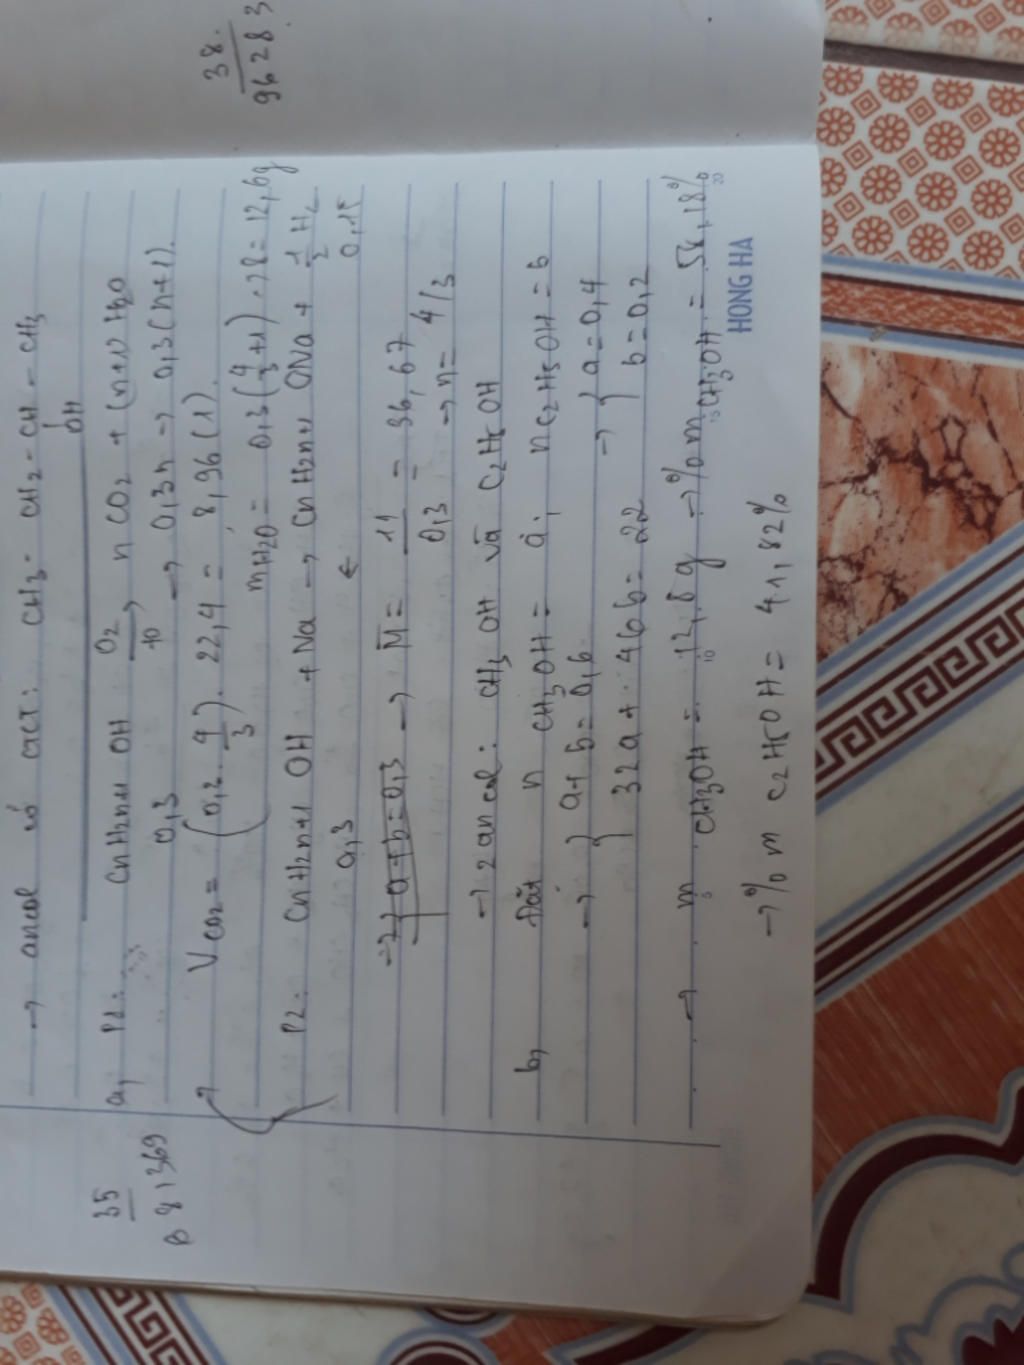 → ancol có CTCT: CH3 - CH2 - CH - CH3
OH
35
B81369
a, P1: CnH2n+1 OH O2 → to n CO2 + (n+1) H2O
0,3 → 0,3n → 0,3(n+1).
VCO2 = (0,2. 4/3). 22,4 = 8,96 (l).
mH2O = 0,3(4/3+1).18 = 12,6g
P2: CnH2n+1 OH + Na → CnH2n+1 ONa + 1/2 H2
0,3 ← 0,15
→ { a+b=0,3 → M = 11/0,3 = 36,67 → n = 4/3
→ 2 ancol: CH3 OH và C2H5 OH
b, Đặt n CH3OH = a; nC2H5OH = b
→ { a + b = 0,6
32a + 46b = 22 → { a = 0,4
b = 0,2
→ m CH3OH = 12,8 g → %m CH3OH = 58,18%
→ %m C2H5OH = 41,82%
HONG HA
5
10
15
20
38.
9628.3